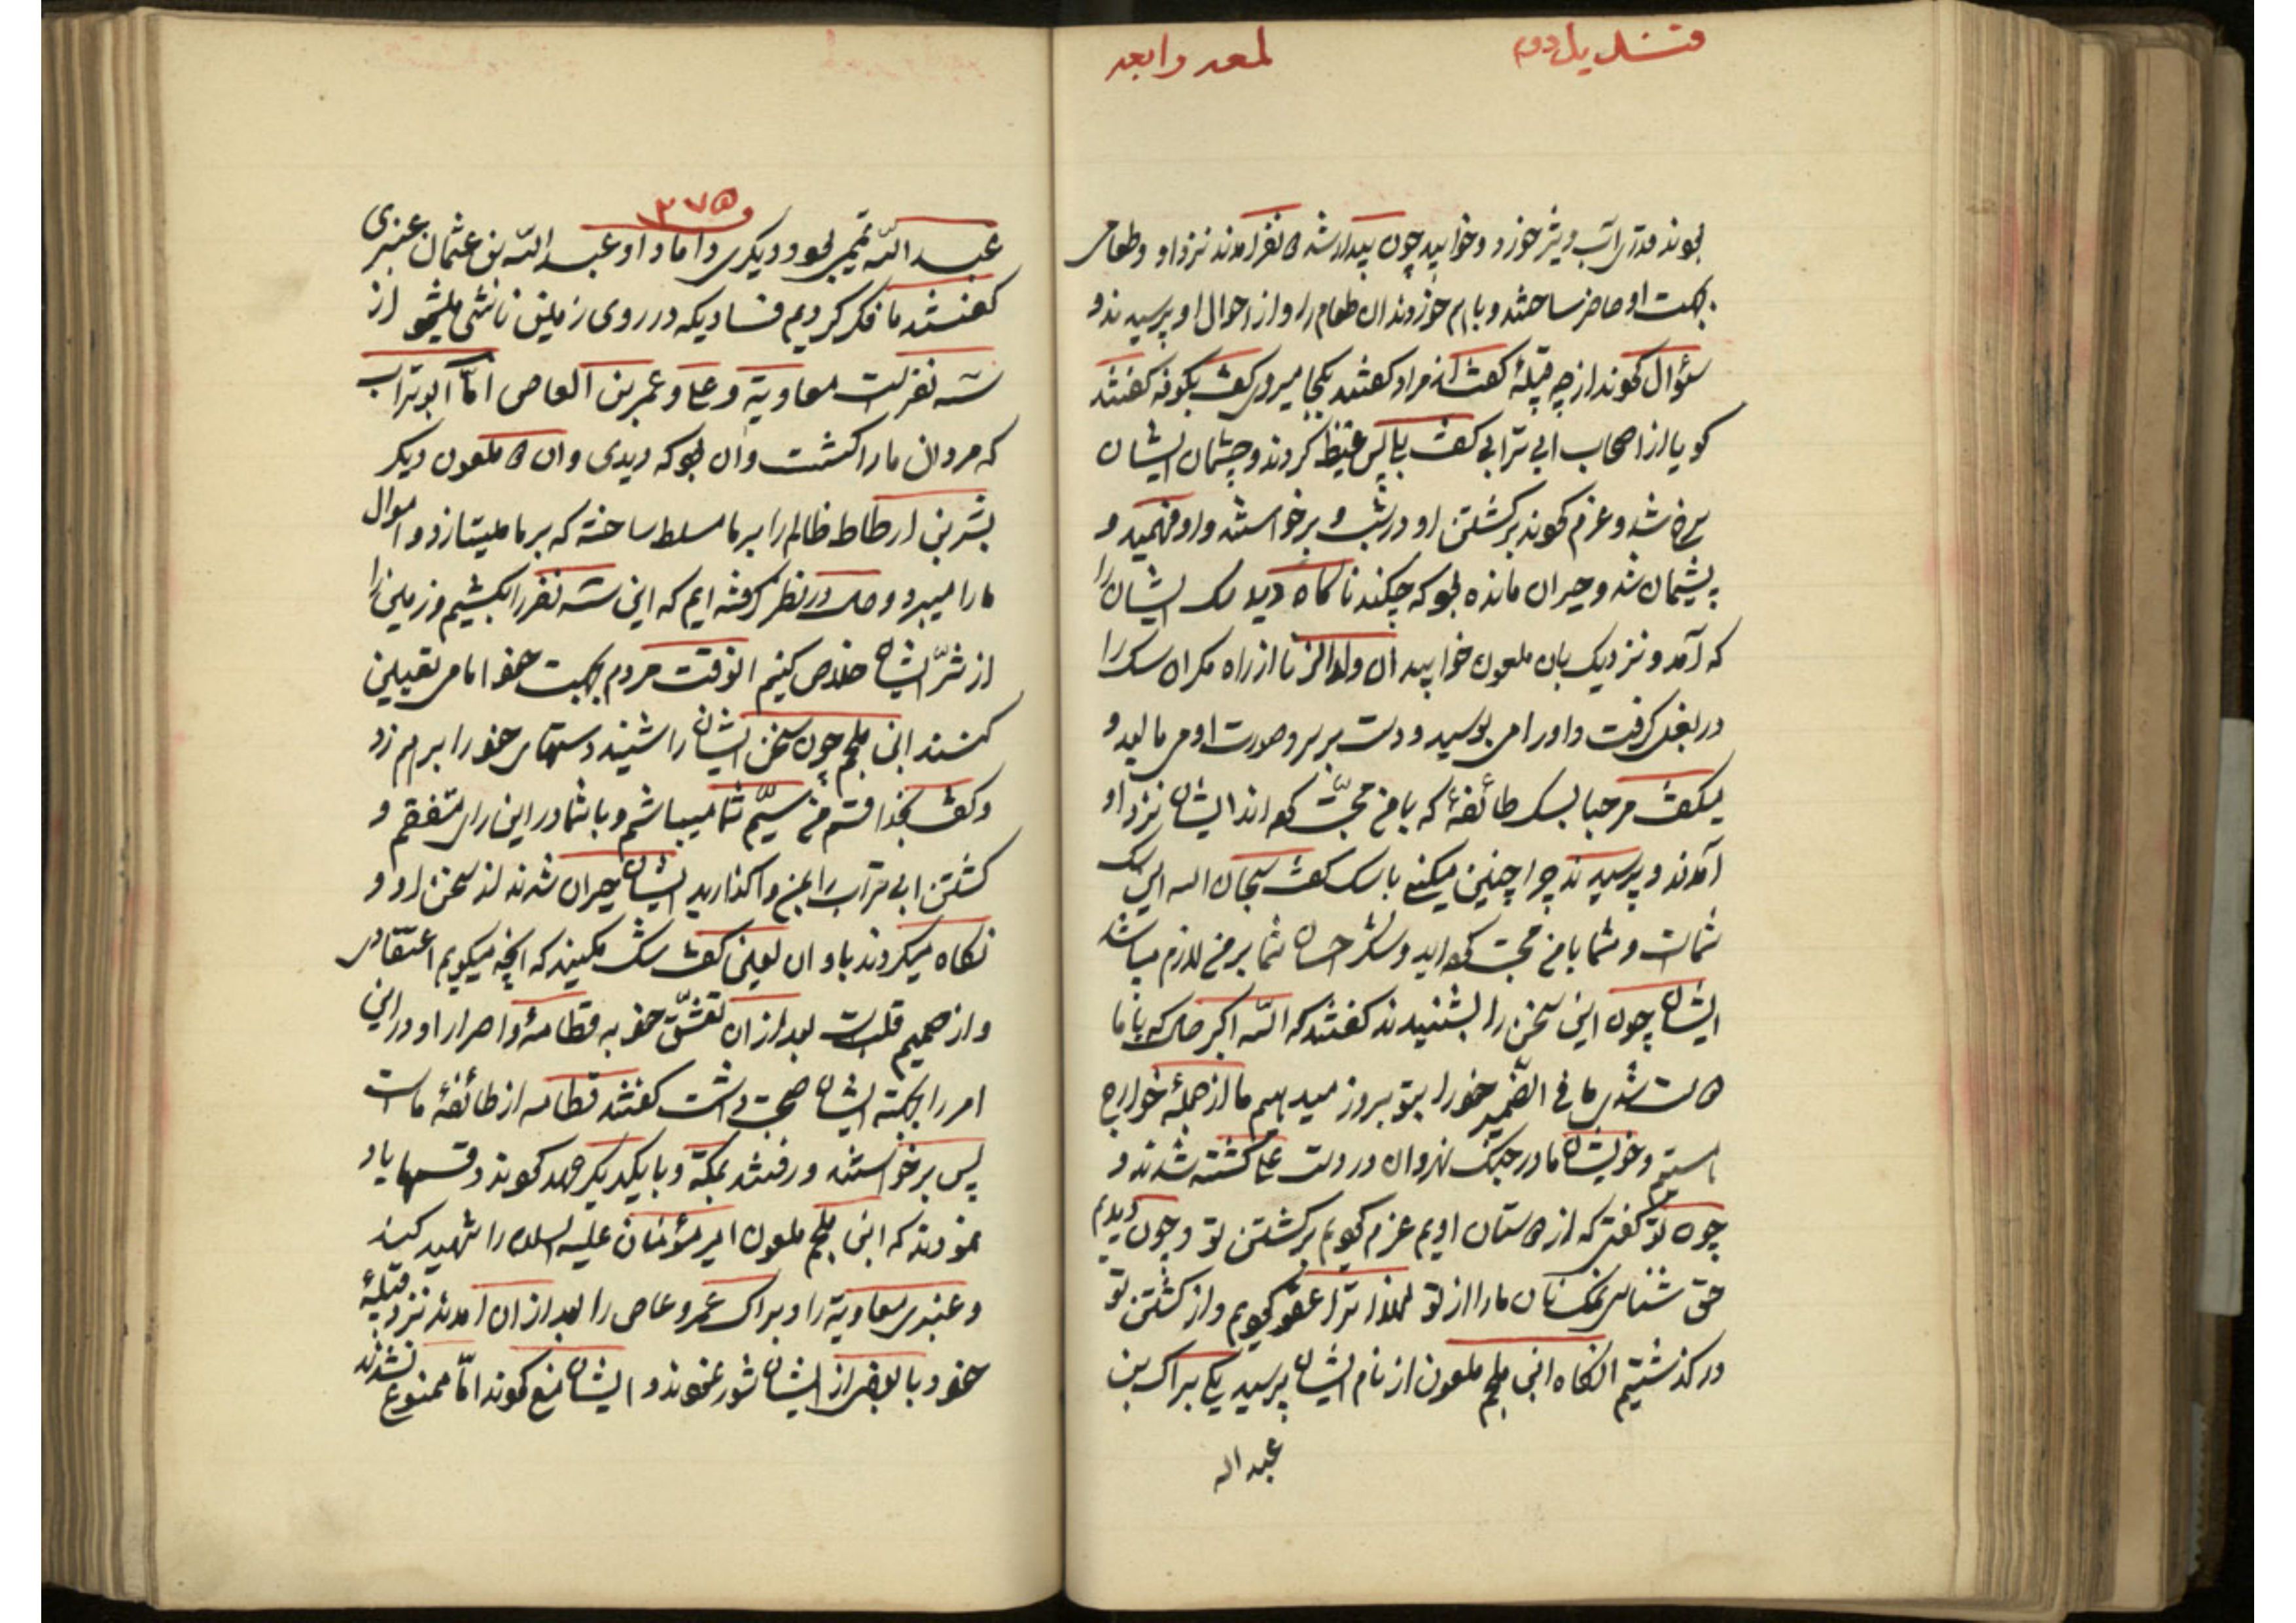 قندیل دوم
لمعه رابعه
بودند قدری آب و شیر خورد و خوابید چون بیدار شد ۵ نفر آمدند نزد او و طعامی
بجهت او حاضر ساختند و با هم خوردند آن طعام را و از احوال او پرسیدند و
سؤال کردند از چه قبیلهٔ گفت از مراد گفتند بکجا میروی گفت بکوفه گفتند
گویا از اصحاب ابی ترابی گفت بلی پس غیظ کردند و چشمان ایشان
سرخ شد و عزم کردند بر کشتن او در شب و برخواستند و او فهمید و
پشیمان شد و حیران مانده بود که چکند ناگاه دید سک ایشان را
که آمد و نزدیک بان ملعون خوابید آن ولد الزنا از راه مکر ان سک را
در بغل گرفت و او را می بوسید و دست بر سر و صورت او می مالید و
میگفت مرحبا بسک طائفهٔ که با من محبّت کرده اند ایشان نزد او
آمدند و پرسیدند چرا چنین میکنی با سک گفت سبحان الله این سک
شماست و شما با من محبت کرده اید و شکر احسان شما بر من لازم میباشد
ایشان چون این سخن را بشنیدند گفتند که اللّه اکبر حال که با ما
دوست شدی ما فی الضّمیر خود را بتو بروز میدهیم ما از جملهٔ خوارج
هستیم و خویشان ما در جنگ نهروان در دست علی کشته شدند و
چون تو گفتی که از دوستان اویم عزم کردیم بر کشتن تو و چون دیدیم
حق شناسی نمک نان ما را از تو لهذا ترا عفو کردیم و از کشتن تو
در گذشتیم انگاه ابن ملجم ملعون از نام ایشان پرسید یکی براک بن
عبد اله
۳۷۵
عبد اللّه تمیمی بود و دیگری داماد او عبد اللّه بن عثمان عنبری
گفتند ما فکر کردیم فسادیکه در روی زمین ناشی میشود از
سه نفر است معاویة و علی و عمر بن العاص امّا ابو تراب
که مردان ما را کشت و آن بود که دیدی و ان ۲ ملعون دیگر
بشر بن ارطاط ظالم را بر ما مسلط ساخته که بر ما میتازد و اموال
ما را میبرد و حال در نظر گرفته ایم که این سه نفر را بکشیم و زمین را
از شرّ ایشان خلاص کنیم انوقت مردم بجهت خود امامی تعیین
کنند ابن ملجم چون سخن ایشان را شنید دستهای خود را بر هم زد
و گفت بخدا قسم من سیّم شما میباشم و با شما در این رای متفقم و
کشتن ابی تراب را بمن واگذارید ایشان حیران شدند از سخن او و
نگاه میکردند باو ان لعین گفت شک مکنید که آنچه میگویم اعتقادی
و از صمیم قلبست بعد از ان تعشّق خود به قطامهٔ و اصرار او در این
امر را بجهته ایشان صحبت داشت گفتند قطامه از طائفهٔ ماست
پس برخواستند و رفتند بمکّة و با یکدیگر عهد کردند و قسمها یاد
نمودند که ابن ملجم ملعون امیر مؤمنان علیه السلام را شهید کند
و عنبری معاویة را و براک عمرو عاص را بعد از ان آمدند نزد قبیلهٔ
خود و با بعضی از ایشان شور نمودند و ایشان منع کردند امّا ممنوع نشدند